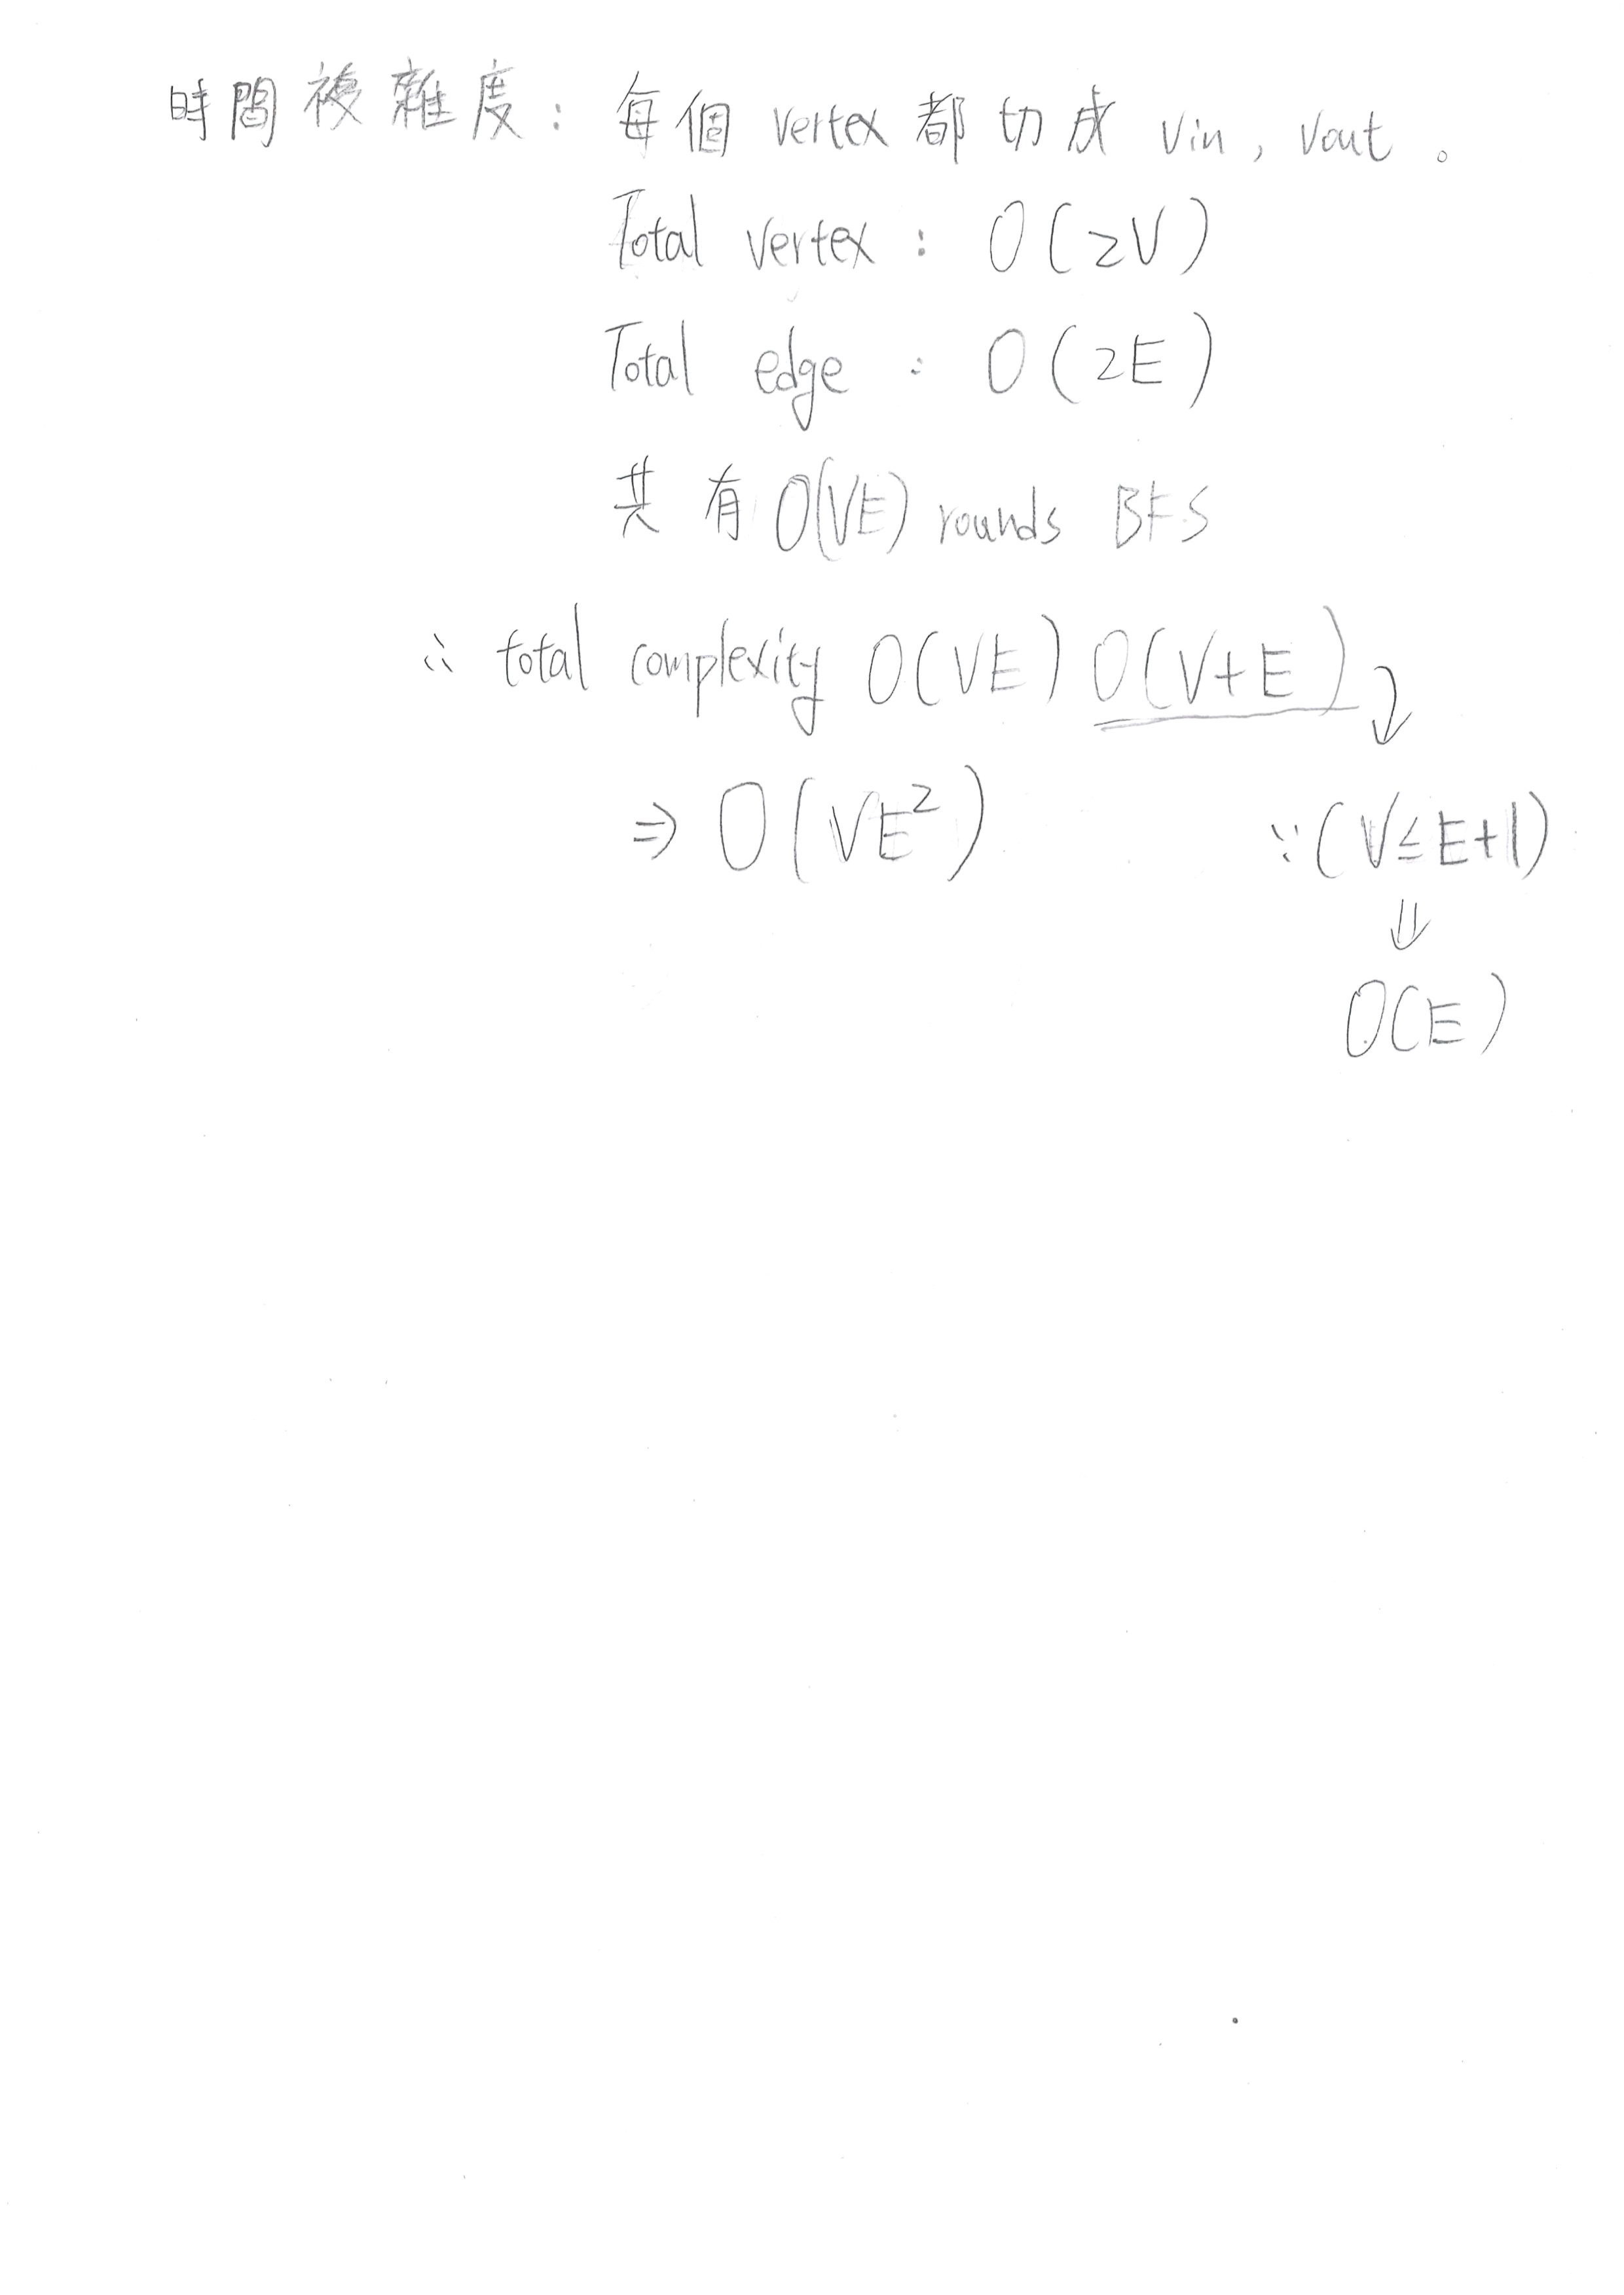 時間複雜度：每個 vertex 都切成 Vin , Vout 。
Total vertex : O(2V)
Total edge : O(2E)
共有 O(VE) rounds BFS
∴ total complexity O(VE) O(V+E)
⇒ O(VE²) ∵(V≤E+1)
⇓
O(E)